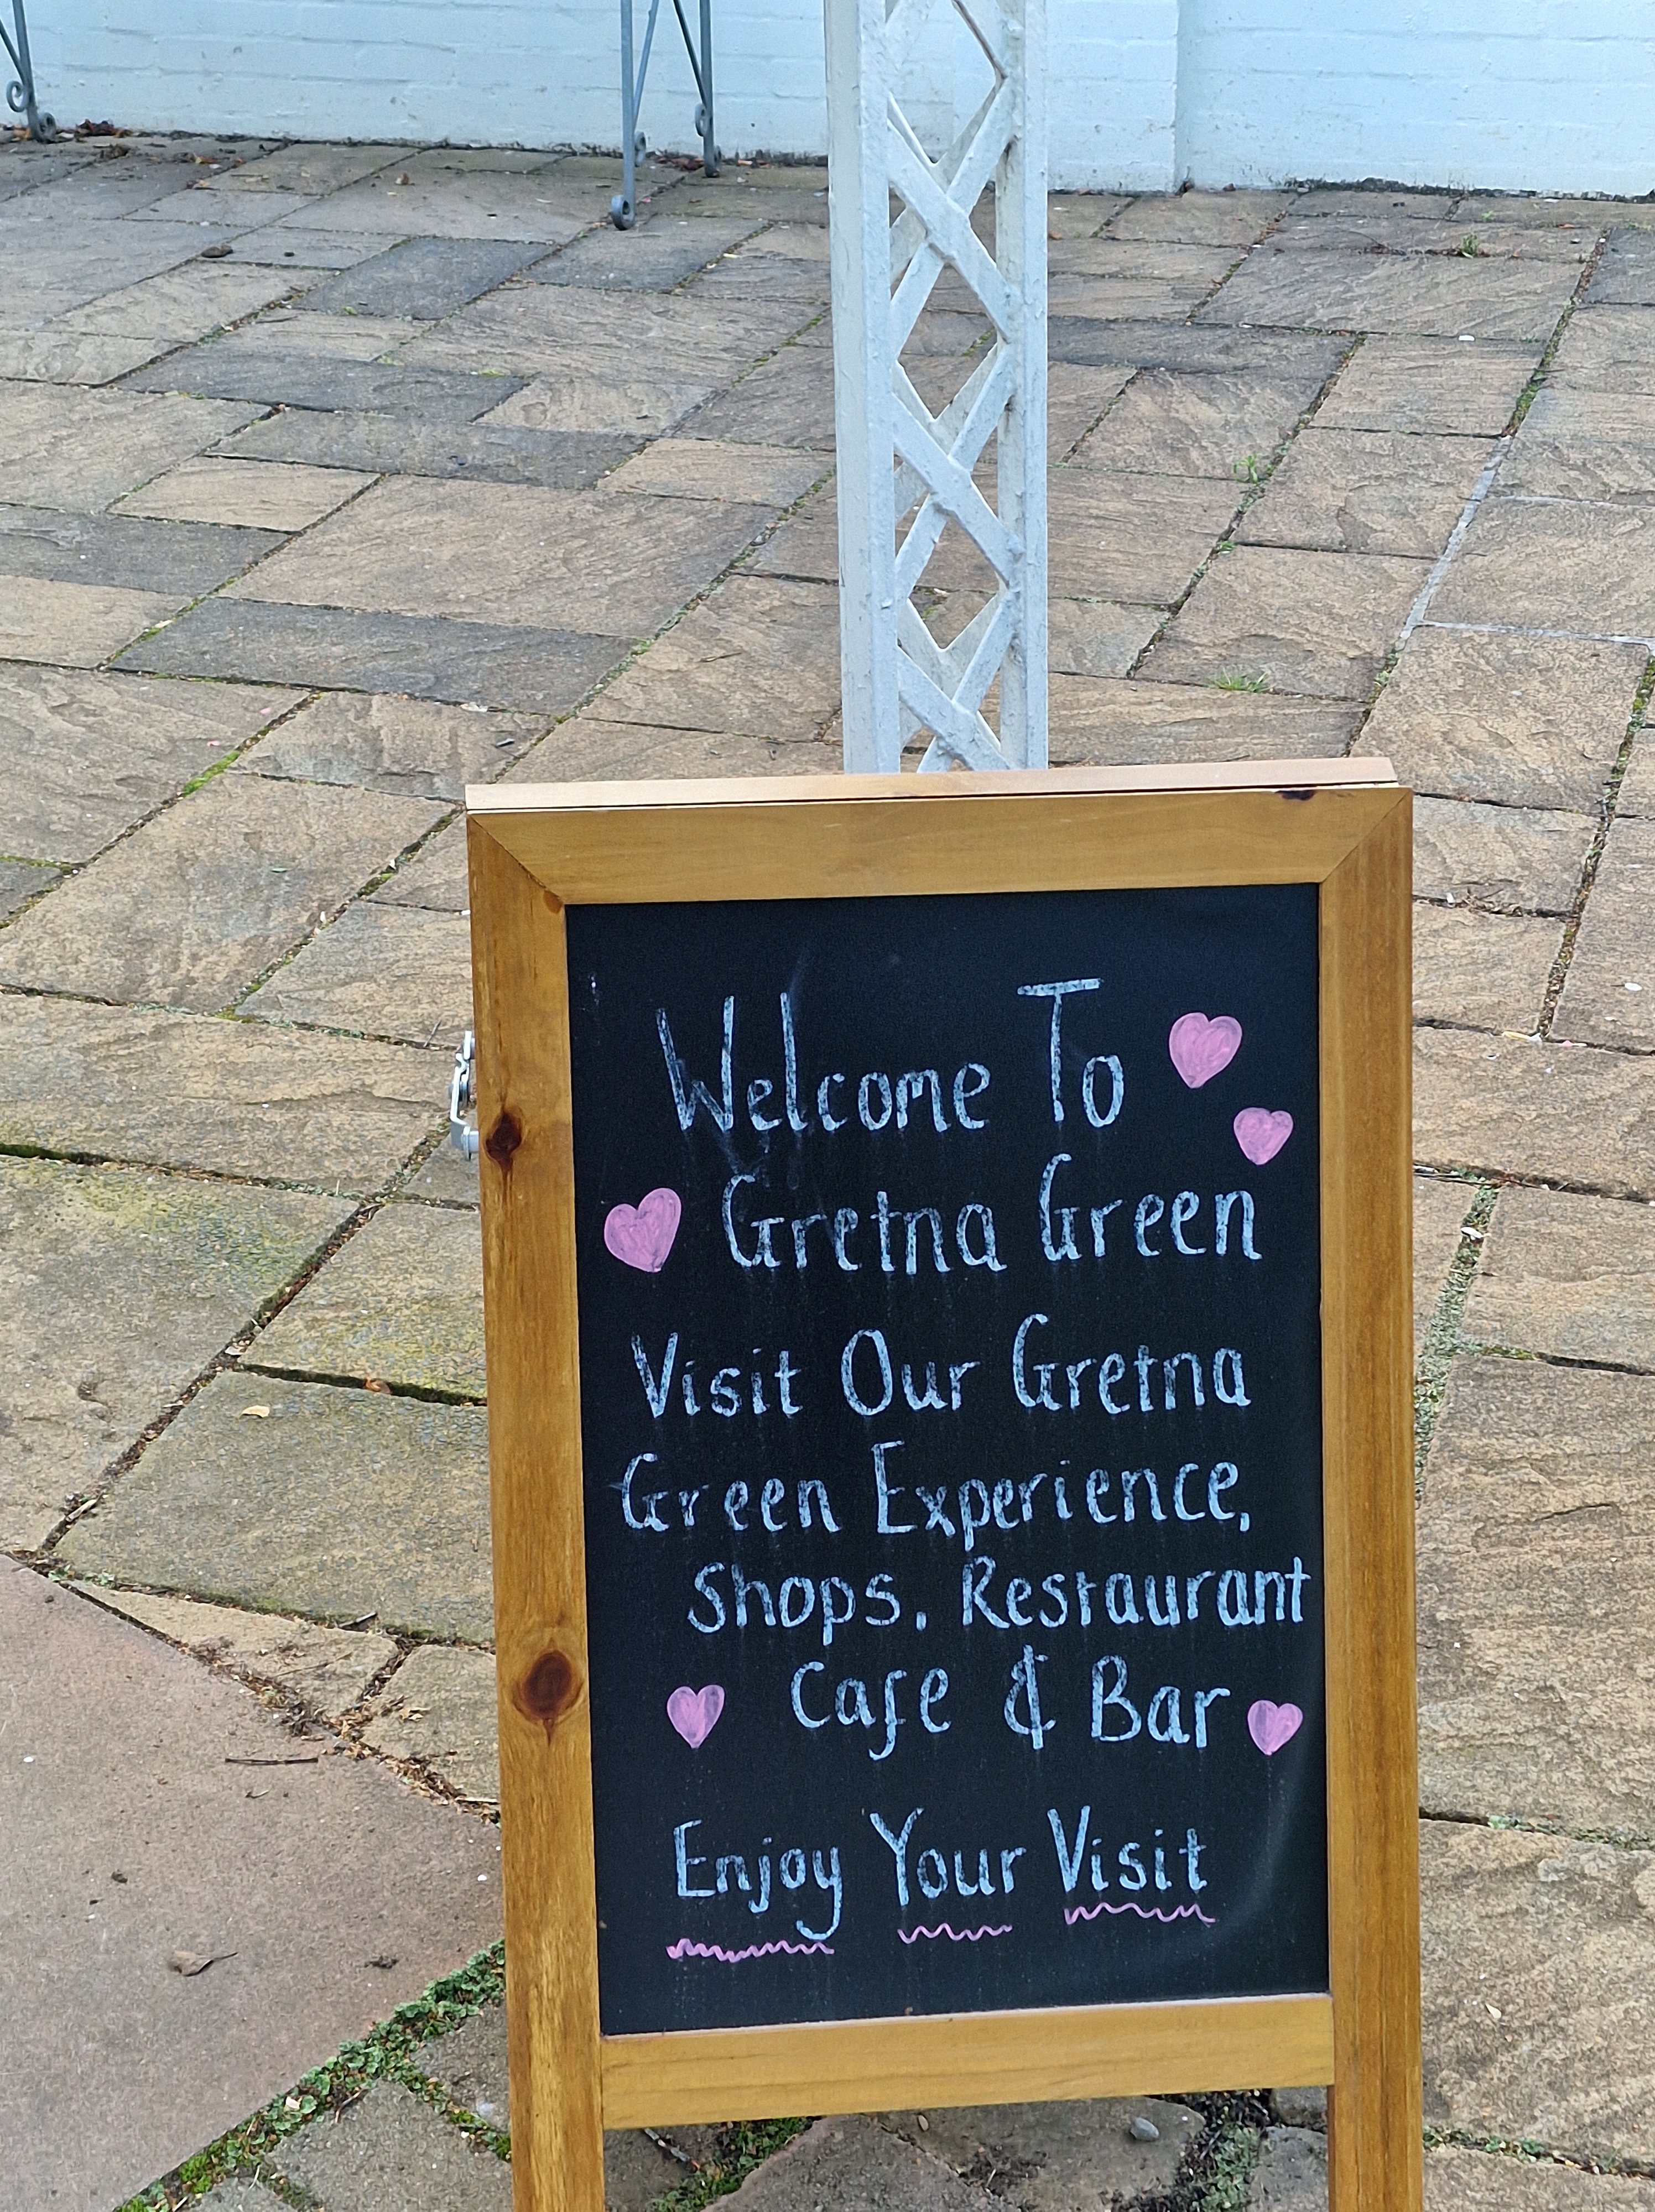 Welcome To
Gretna Green
Visit Our Gretna
Green Experience,
Shops, Restaurant
Cafe & Bar
Enjoy Your Visit